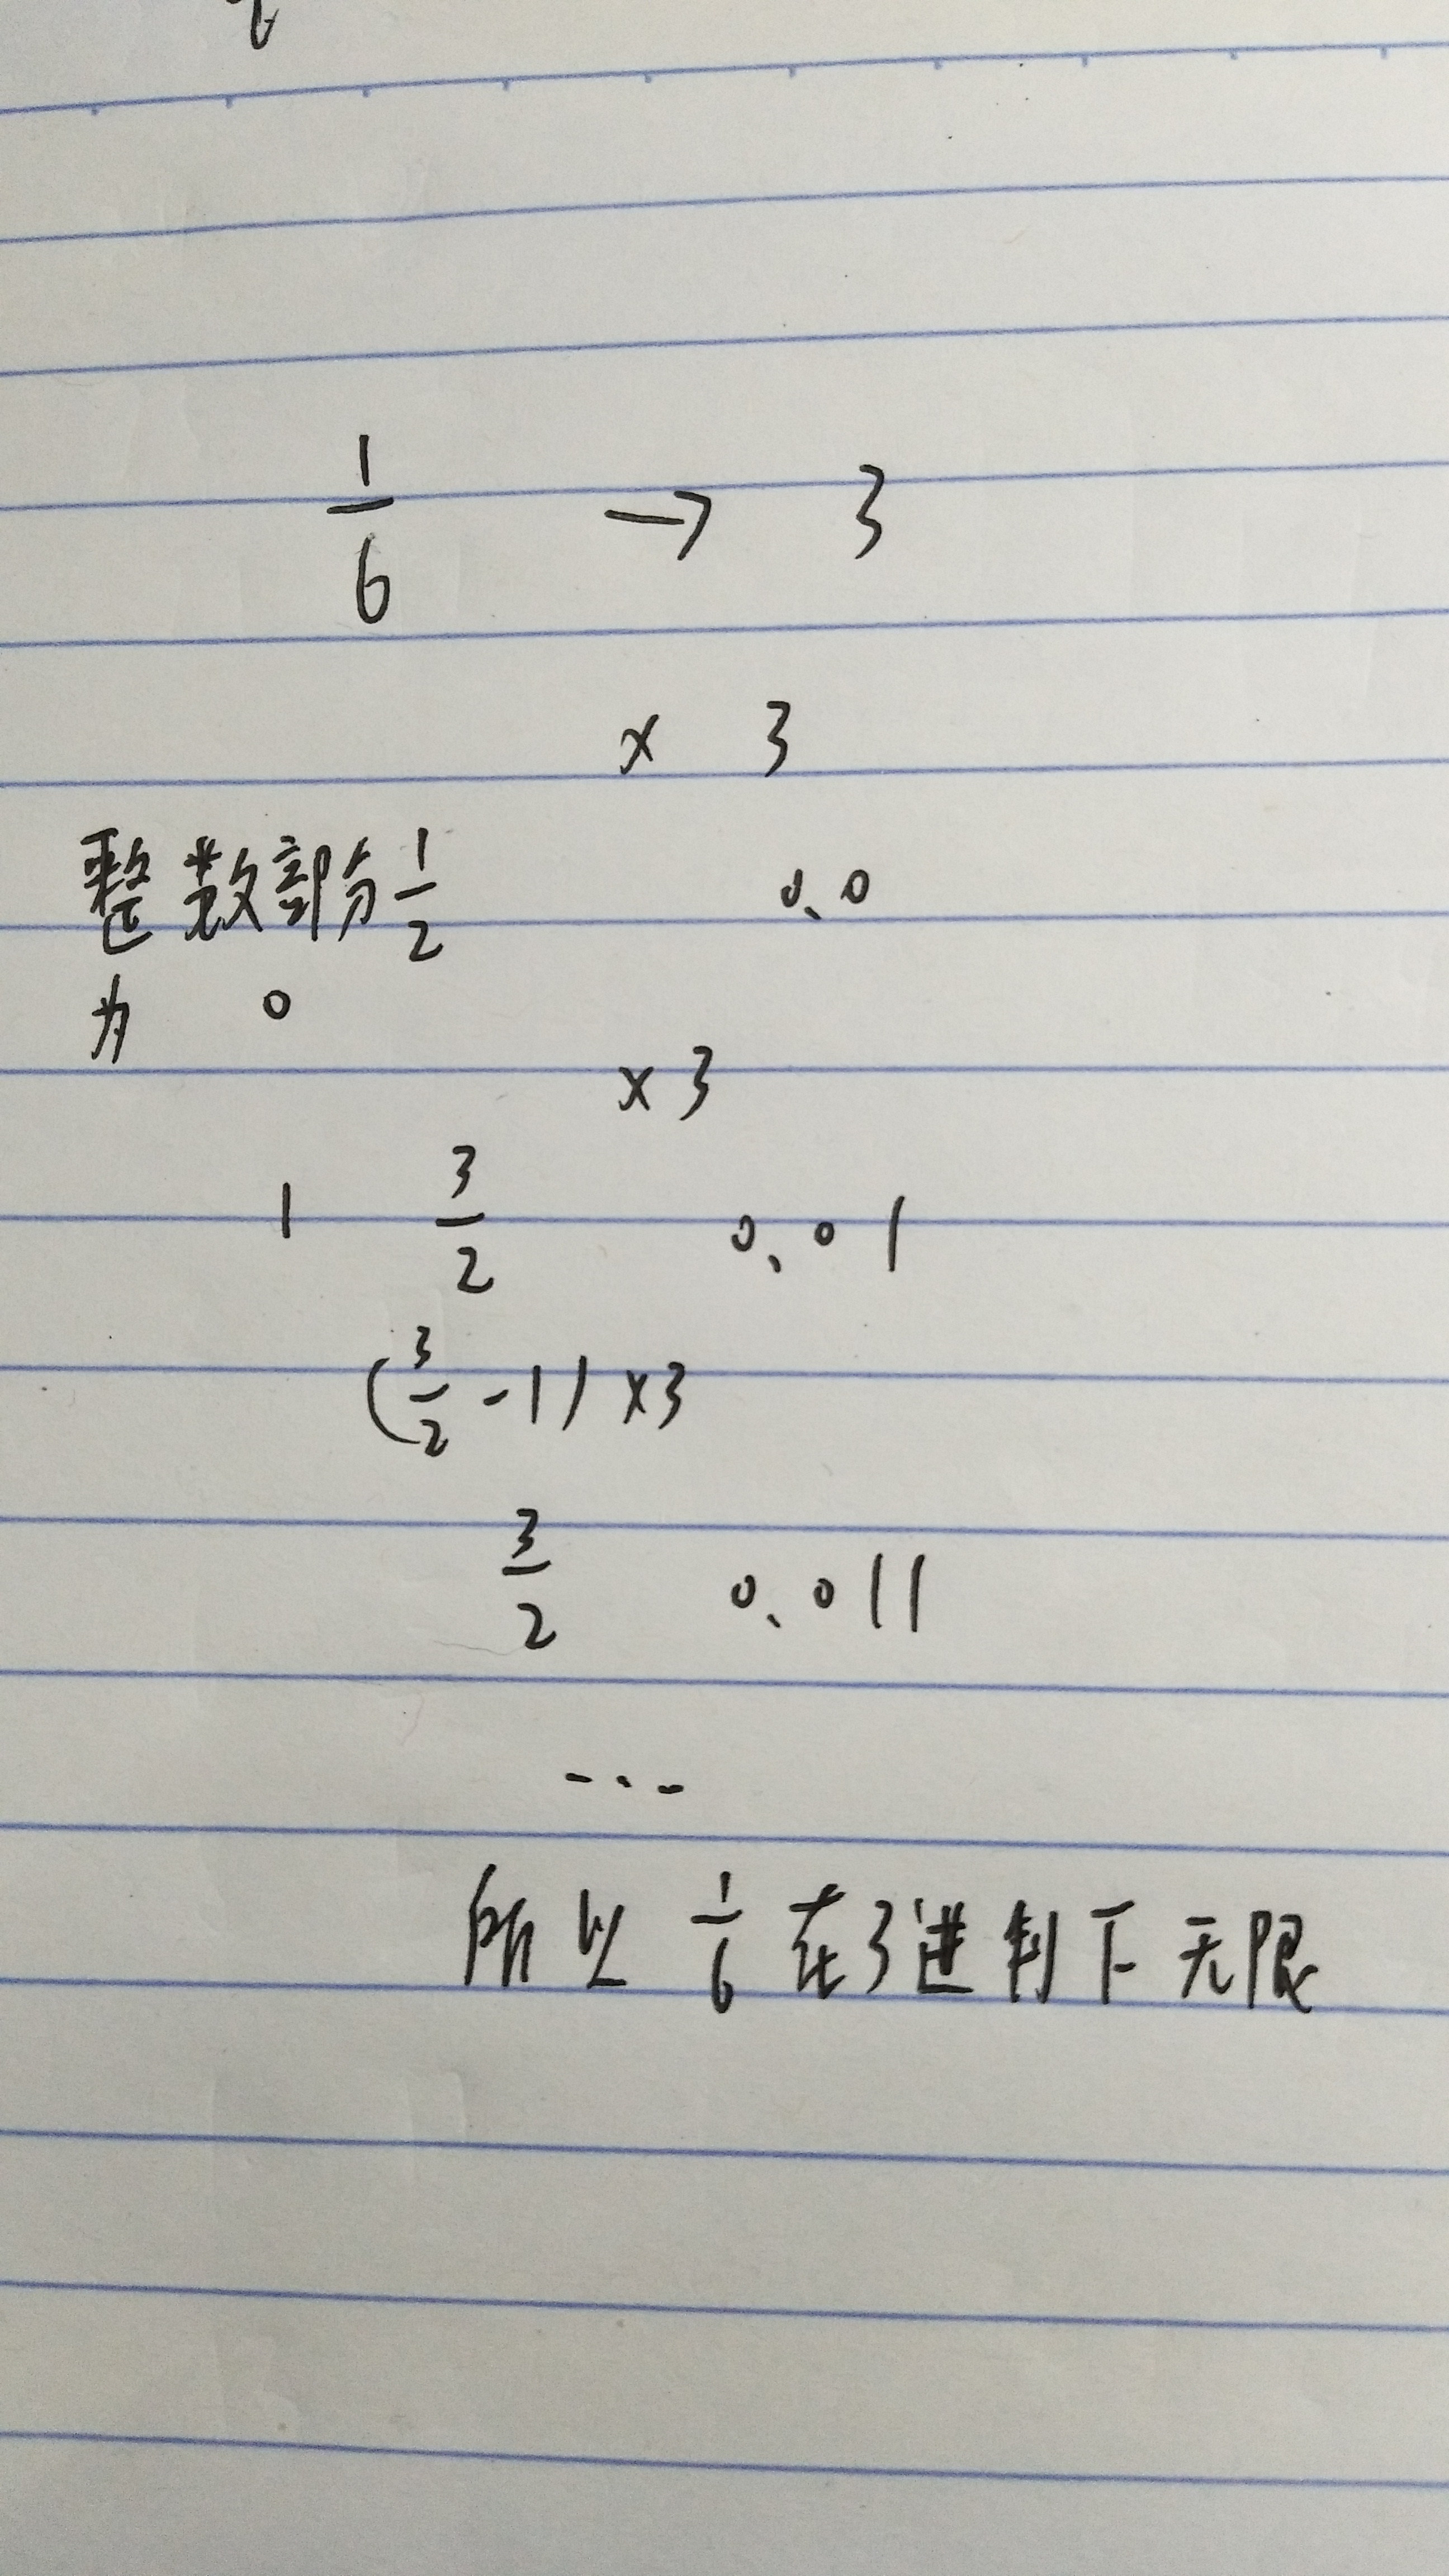 1/6 → 3
× 3
整数部分 1/2 0.0
为 0
×3
1 3/2 0.01
(3/2 -1) ×3
3/2 0.011
...
所以 1/6 在3进制下无限